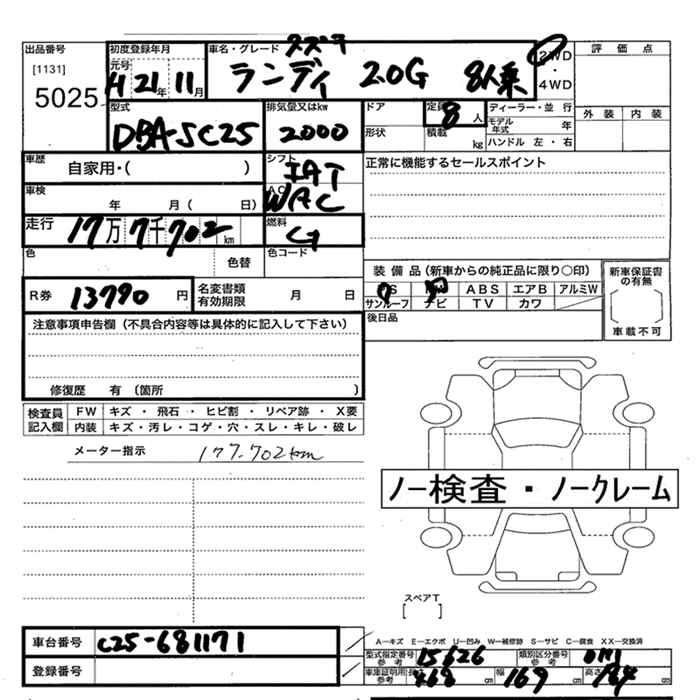 出品番号
[1131]
5025
初度登録年月
元号
H 21年 11月
車名・グレード スズキ
ランディ 20G 8人乗
2WD
・
4WD
評価点
外装 内装
型式
DBA-SC25
排気量又はkw
2000
ドア
形状
定員
8人
積載 kg
ディーラー・並行
モデル年式 年
ハンドル 左・右
車歴
自家用・( )
シフト
IAT
正常に機能するセールスポイント
車検
年 月( 日)
AC
WAC
走行
17万7千702km
燃料
G
色
色替
色コード
装備品(新車からの純正品に限り○印)
PS PW ABS エアB アルミW
サンルーフ ナビ TV カワ
新車保証書の有無
車載不可
R券 13790円
名変書類有効期限 月 日
後日品
注意事項申告欄(不具合内容等は具体的に記入して下さい)
修復歴 有(箇所 )
検査員記入欄
FW キズ・飛石・ヒビ割・リペア跡・X要
内装 キズ・汚レ・コゲ・穴・スレ・キレ・破レ
メーター指示 177.702km
ノー検査・ノークレーム
スペアT
[ ]
A―キズ E―エクボ U―凹み W―補修跡 S―サビ C―腐食 XX―交換済
車台番号 C25-681171
登録番号
型式指定番号 参考 15626
類別区分番号 参考 0111
車庫証明用 参考 長さ 468cm 幅 169cm 高さ